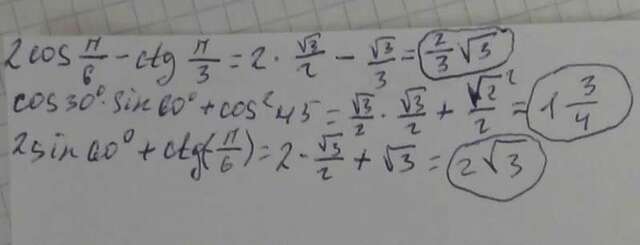 2cos π/6 - ctg π/3 = 2 · √3/2 - √3/3 = 2/3 √3
cos30° · sin60° + cos²45 = √3/2 · √3/2 + √2²/2 = 1 3/4
2sin60° + ctg(-π/6) = 2 · √3/2 + √3 = 2√3